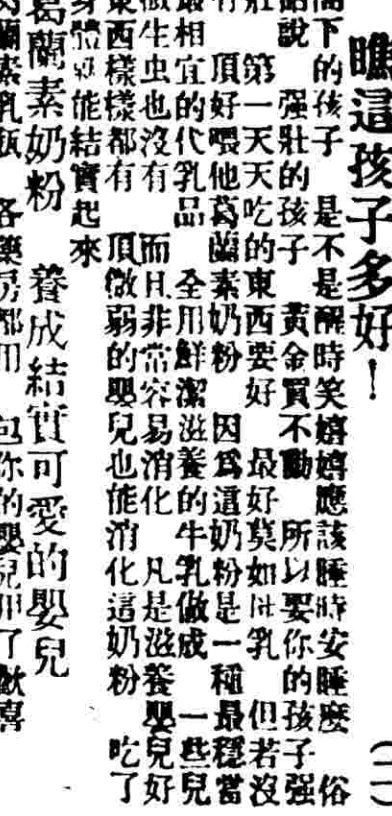 瞧這孩子多好！ (二)
閣下的孩子 是不是醒時笑嬉嬉應該睡時安睡麼 俗
語說 強壯的孩子 黃金買不動 所以要你的孩子強
壯 第一天天吃的東西要好 最好莫如乳 但若沒
有 頂好喂他葛蘭素奶粉 因爲這奶粉是一種最穩當
最相宜的代乳品 全用鮮潔滋養的牛乳做成 一些兒
微生虫也沒有 而且非常容易消化 凡是滋養嬰兒好
東西樣樣都有 頂微弱的嬰兒也能消化這奶粉 吃了
身體就能結實起來
葛蘭素奶粉 養成結實可愛的嬰兒
蘭素乳瓶 各藥房都用 包你的嬰兒用了歡喜